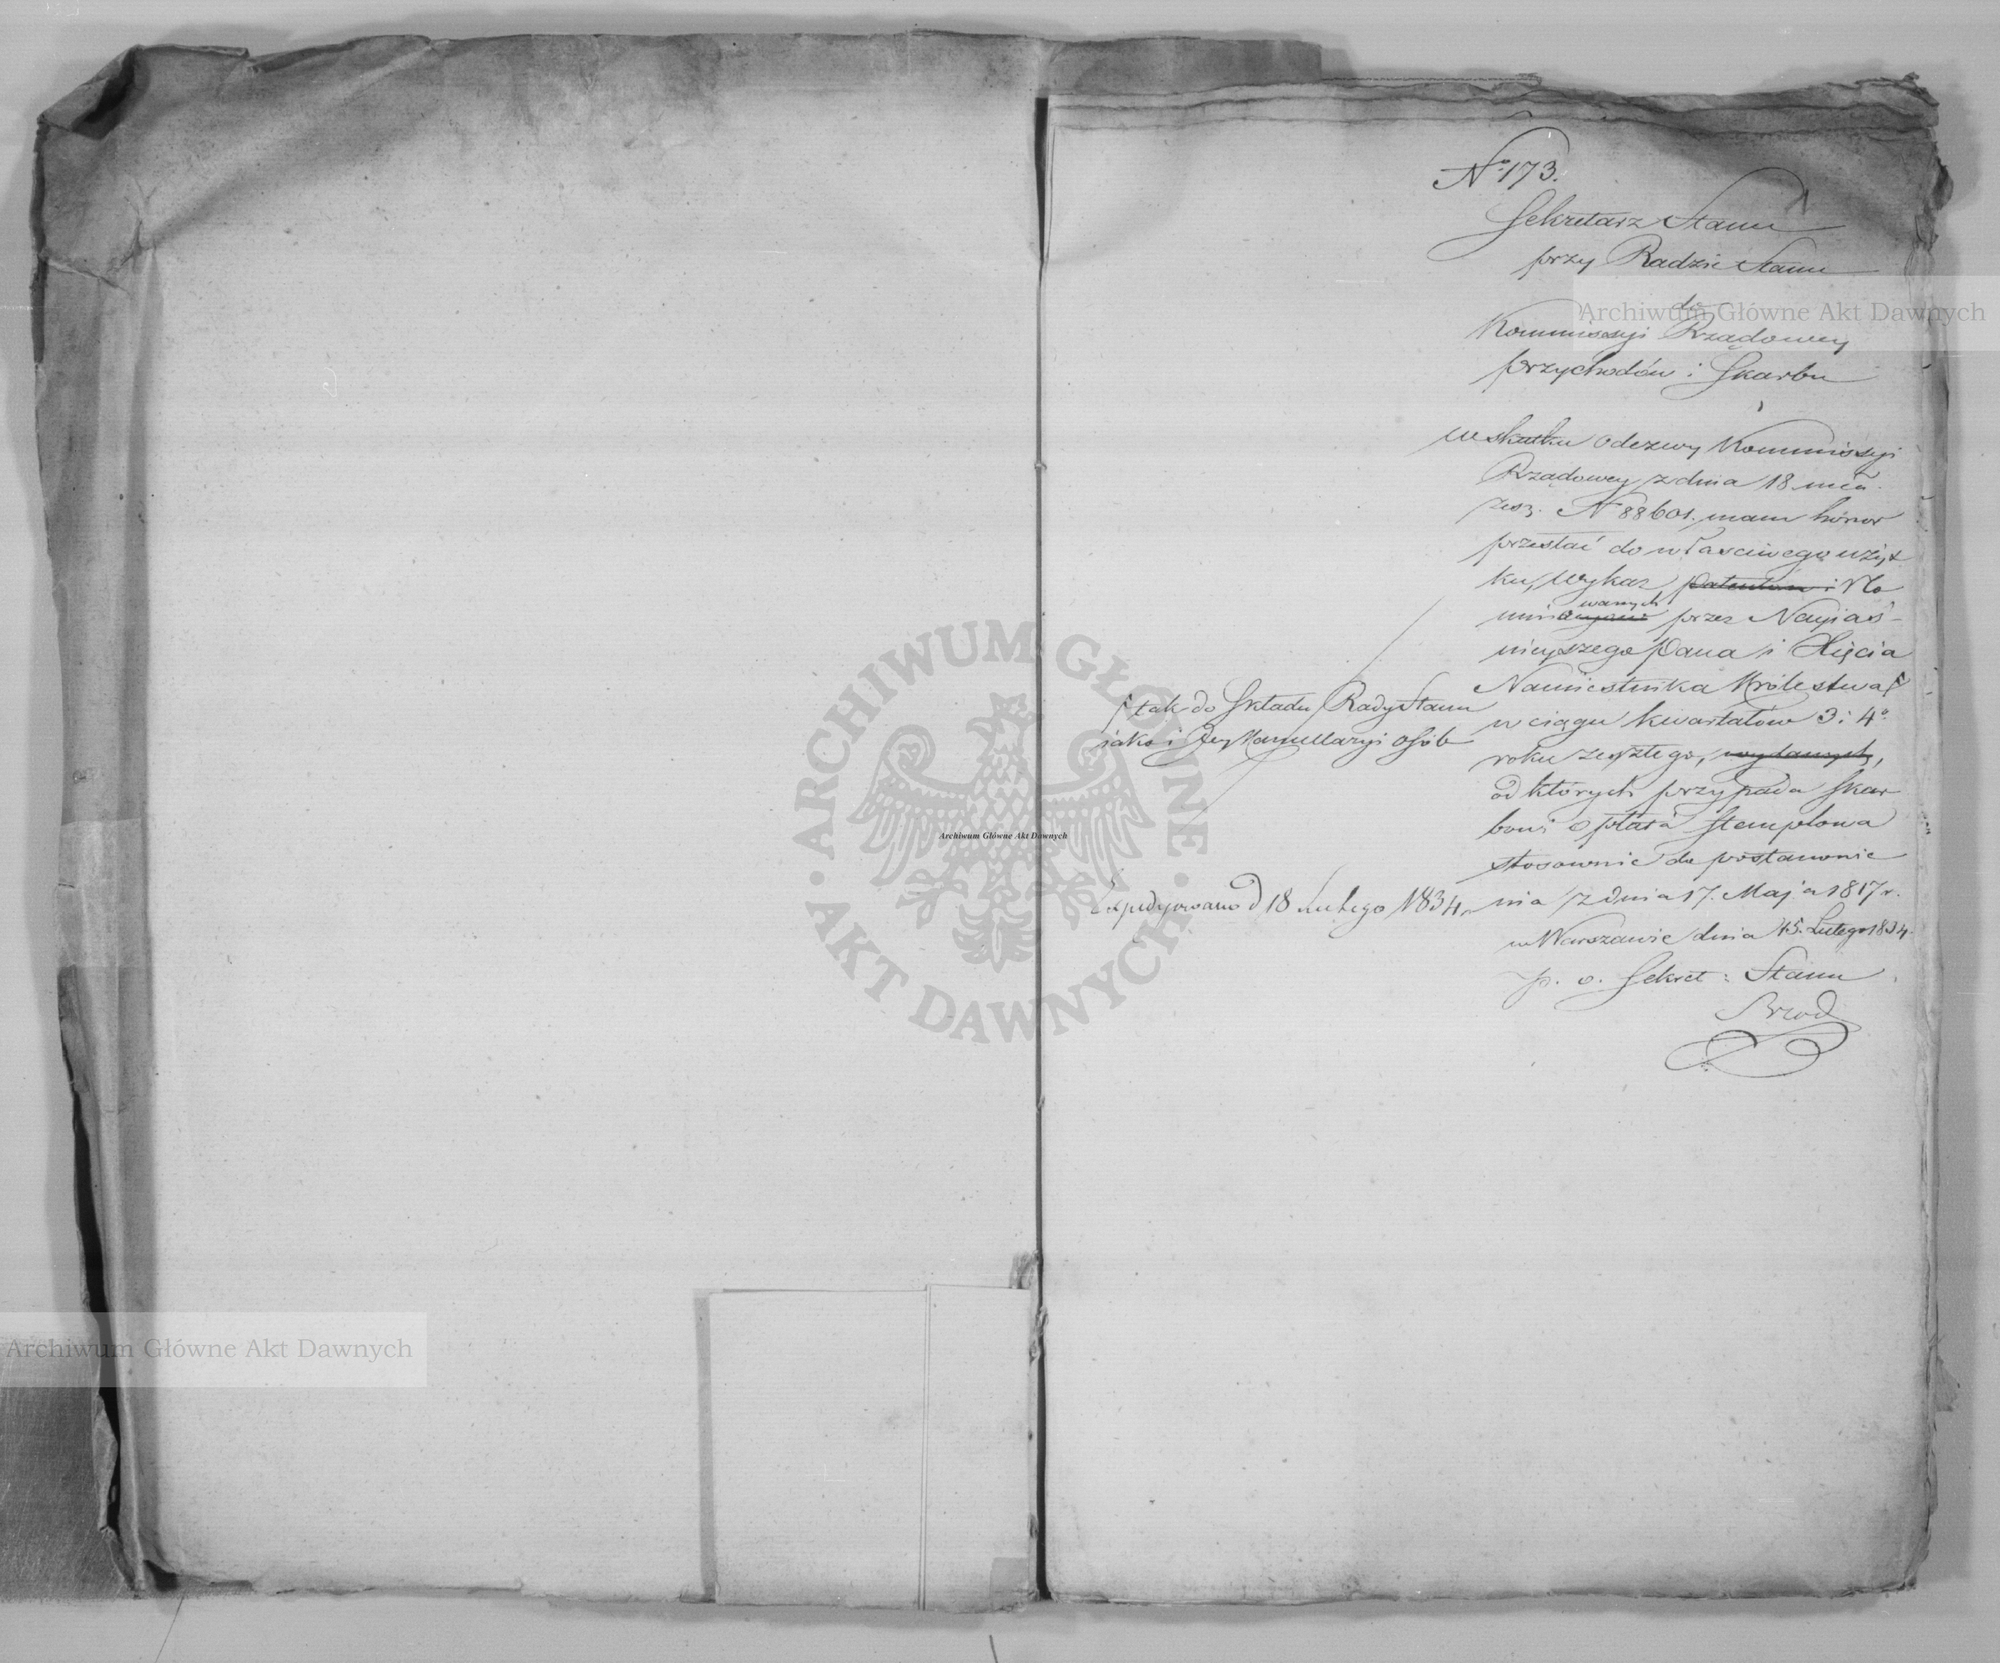 No 173.
Sekretarz Stanu
przy Radzie Stanu
do
Kommissyi Rządowey
przychodów i Skarbu
w skutku odezwy Kommissyi
Rządowey z dnia 18 mca
zesz. N 88601. mam honor
przesłać do właściwego użyt
ku, wykaz patentów i No
wanych
mina przez Nayiaś-
nieyszego Pana i Xięcia
Namiestnika Królestwa
w ciągu kwartałów 3 i 4o
roku zeszłego, wydanych,
od których przypada Skar
bowi opłata stemplowa
stosownie do postanowie
nia z dnia 17. Maja 1817 r.
w Warszawie dnia 15. Lutego 1834.
p. o. Sekret: Stanu
Brod
tak do Składu Rady Stanu
jako i Jey Kancellaryi osób
Expedyowano d 18 Lutego 1834.
Archiwum Główne Akt Dawnych
Archiwum Główne Akt Dawnych
Archiwum Główne Akt Dawnych
ARCHIWUM GŁÓWNE · AKT DAWNYCH ·